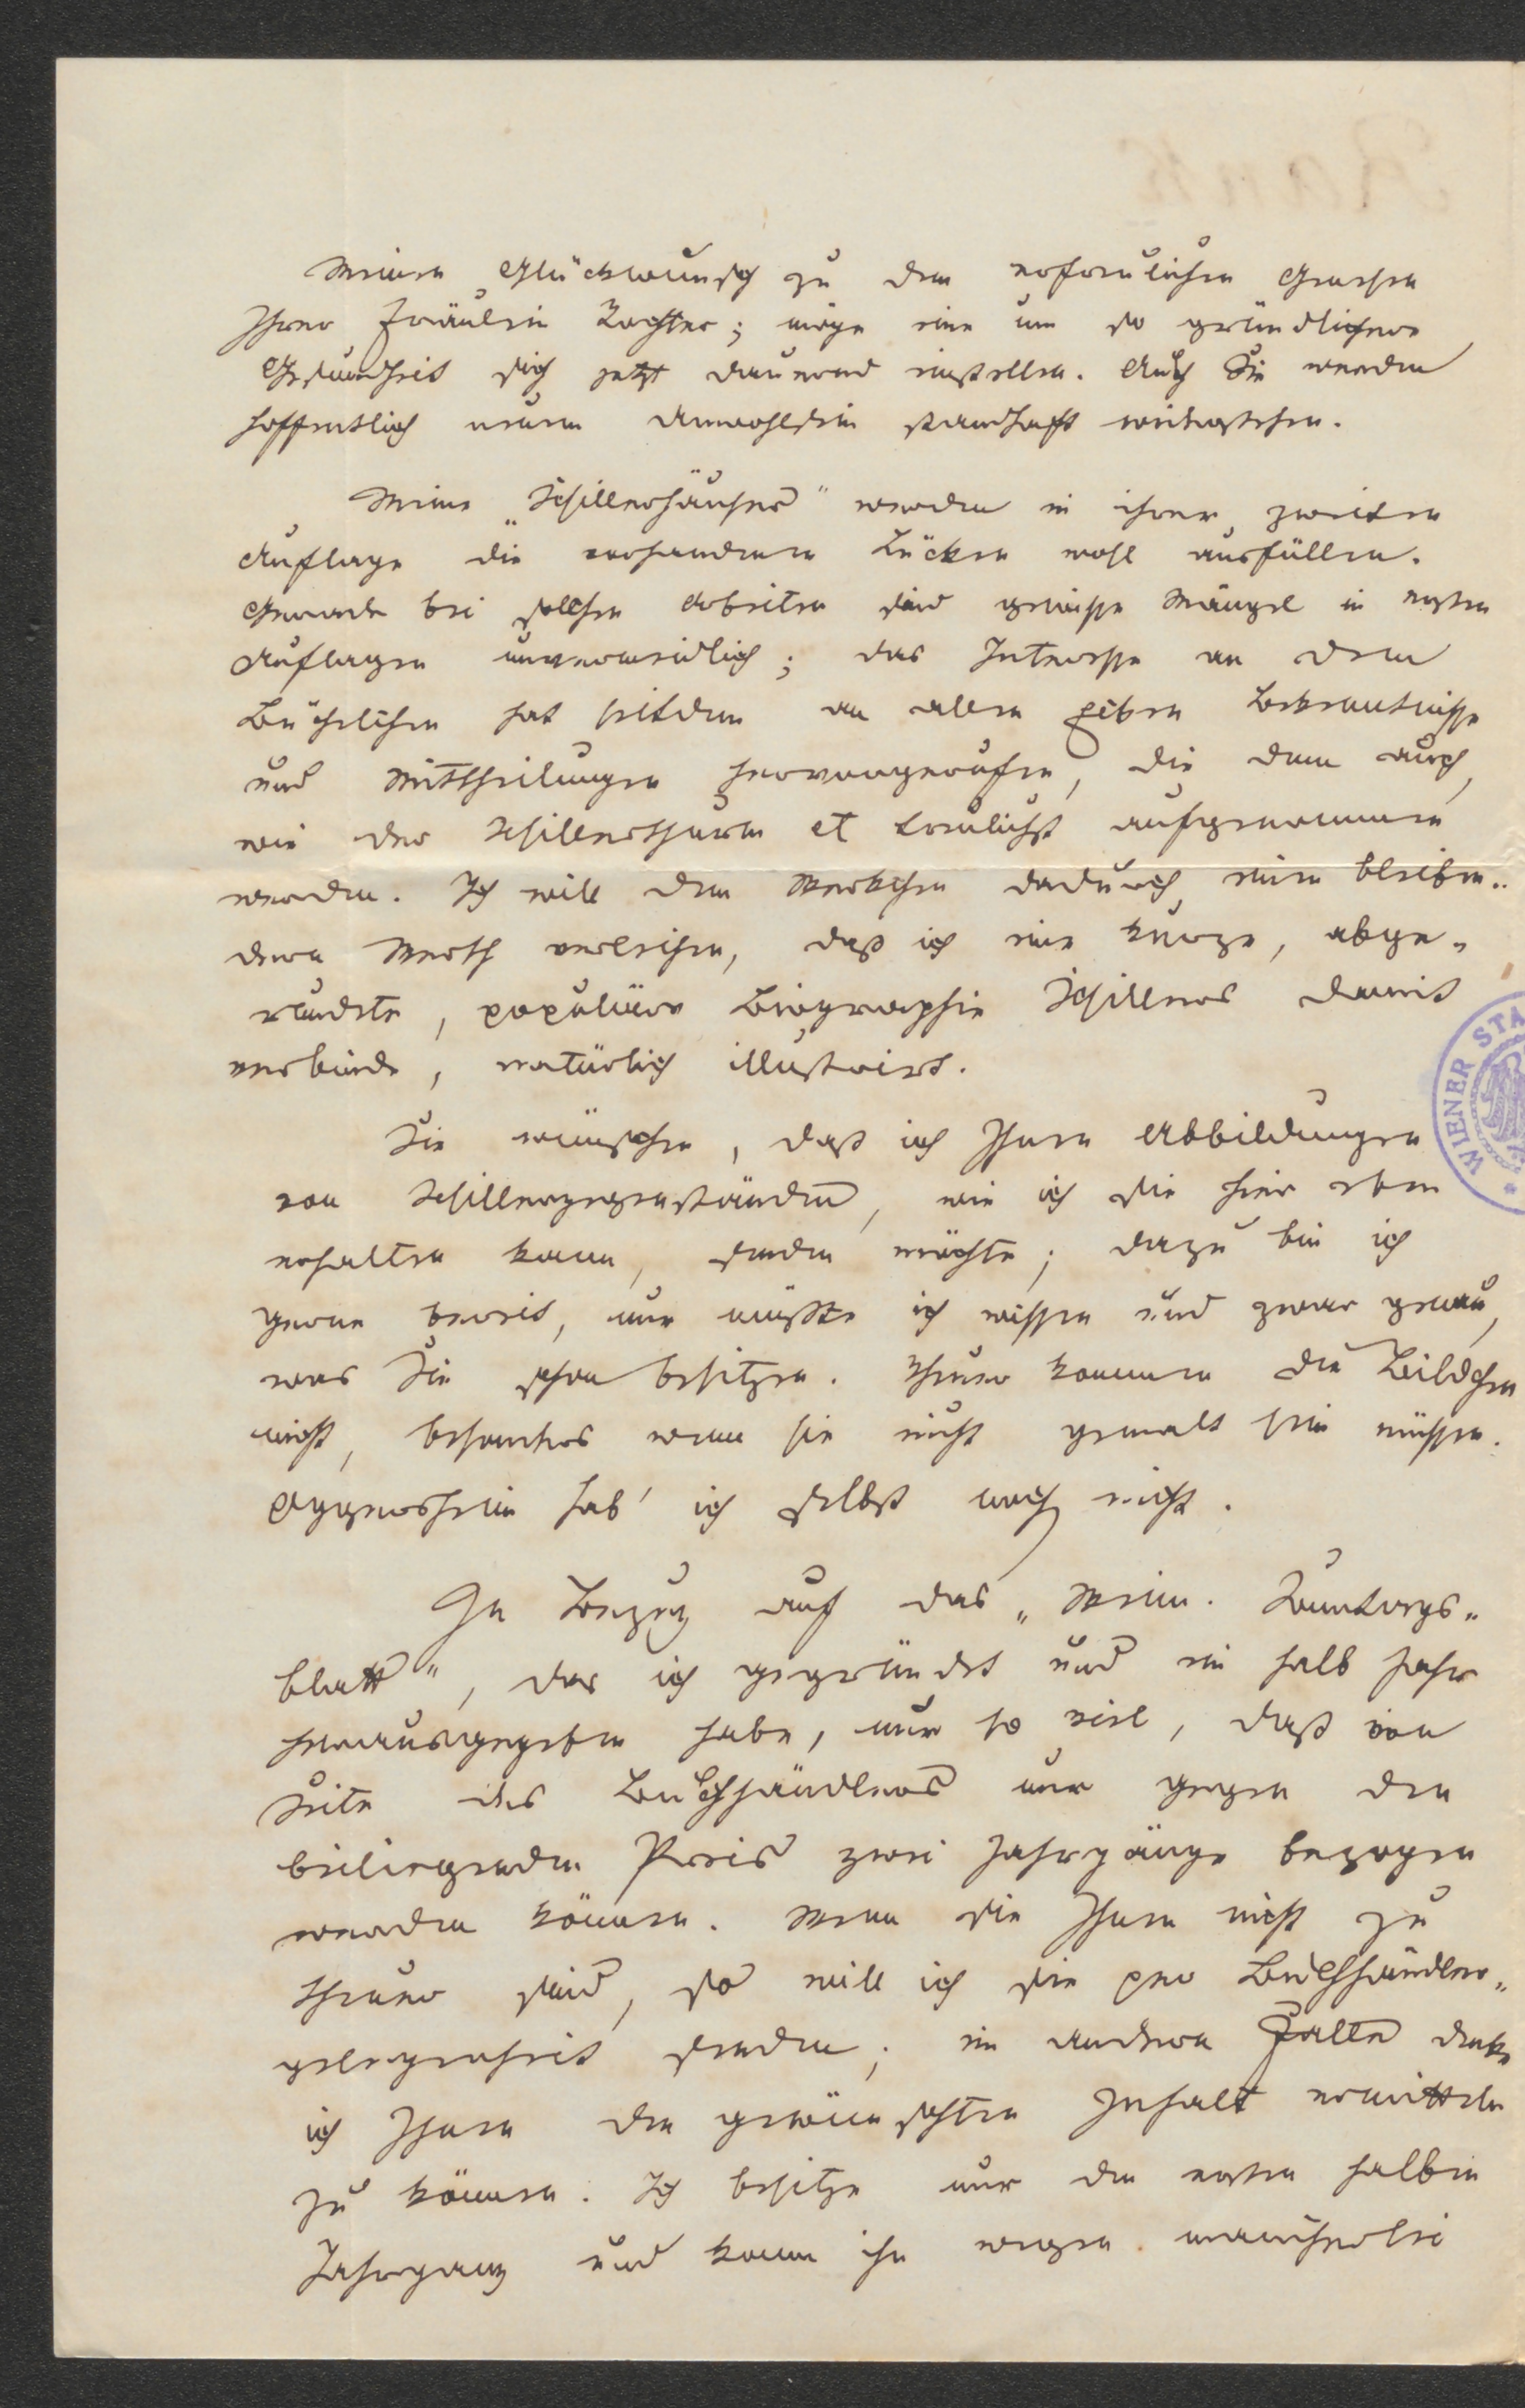 Meinen Glückwunsch zu dem erfreulichen Genesen
Ihrer Fräulein Tochter; möge eine um so gründlichere
Gesundheit sich jetzt dauernd einstellen. Auch Sie werden
hoffentlich neuem Unwohlsein standhaft widerstehen.
Meine „Schillerhäuser“ werden in ihrer zweiten
Auflage die vorhandenen Lücken wohl ausfüllen.
Gerade bei solchen Arbeiten sind gewisse Mängel in ersten
Auflagen unvermeidlich; das Interesse an dem
Büchelchen hat seitdem an allen Bekenntnisse
und Mittheilungen hervorgerufen, die dann auch,
wie der Schillerthurm et treulichst aufgenommen
werden. Ich will dem Werkchen dadurch einen bleiben-
dern Werth verleihen, daß ich eine kurze, abge-
rundete, populäre Biographie Schillers damit
verbinde, natürlich illustrirt.
Sie wünschen, daß ich Ihnen Abbildungen
von Schillergegenständen, wie ich sie hier eben
erhalten kann, senden möchte; dazu bin ich
gerne bereit, nur müßte ich wissen und zwar genau,
was Sie schon besitzen. Theuer kommen die Bildchen
nicht, besonders wenn sie nicht gemalt sein müssen.
Oggersheim hab' ich selbst noch nicht.
In Bezug auf das „Weim. Sonntags-
blatt“, das ich gegründet und ein halb Jahr
herausgegeben habe, nur so viel, daß von
Seite des Buchhändlers nur gegen den
beiliegenden Preis zwei Jahrgänge bezogen
werden können. Wenn sie Ihnen nicht zu
theuer sind, so will ich sie per Buchhändler-
gelegenheit senden; im andern Falle denke
ich Ihnen den gewünschten Inhalt ermitteln
zu können. Ich besitze nur den ersten halben
Jahrgang und kann ihn wegen mancherlei
WIENER STA